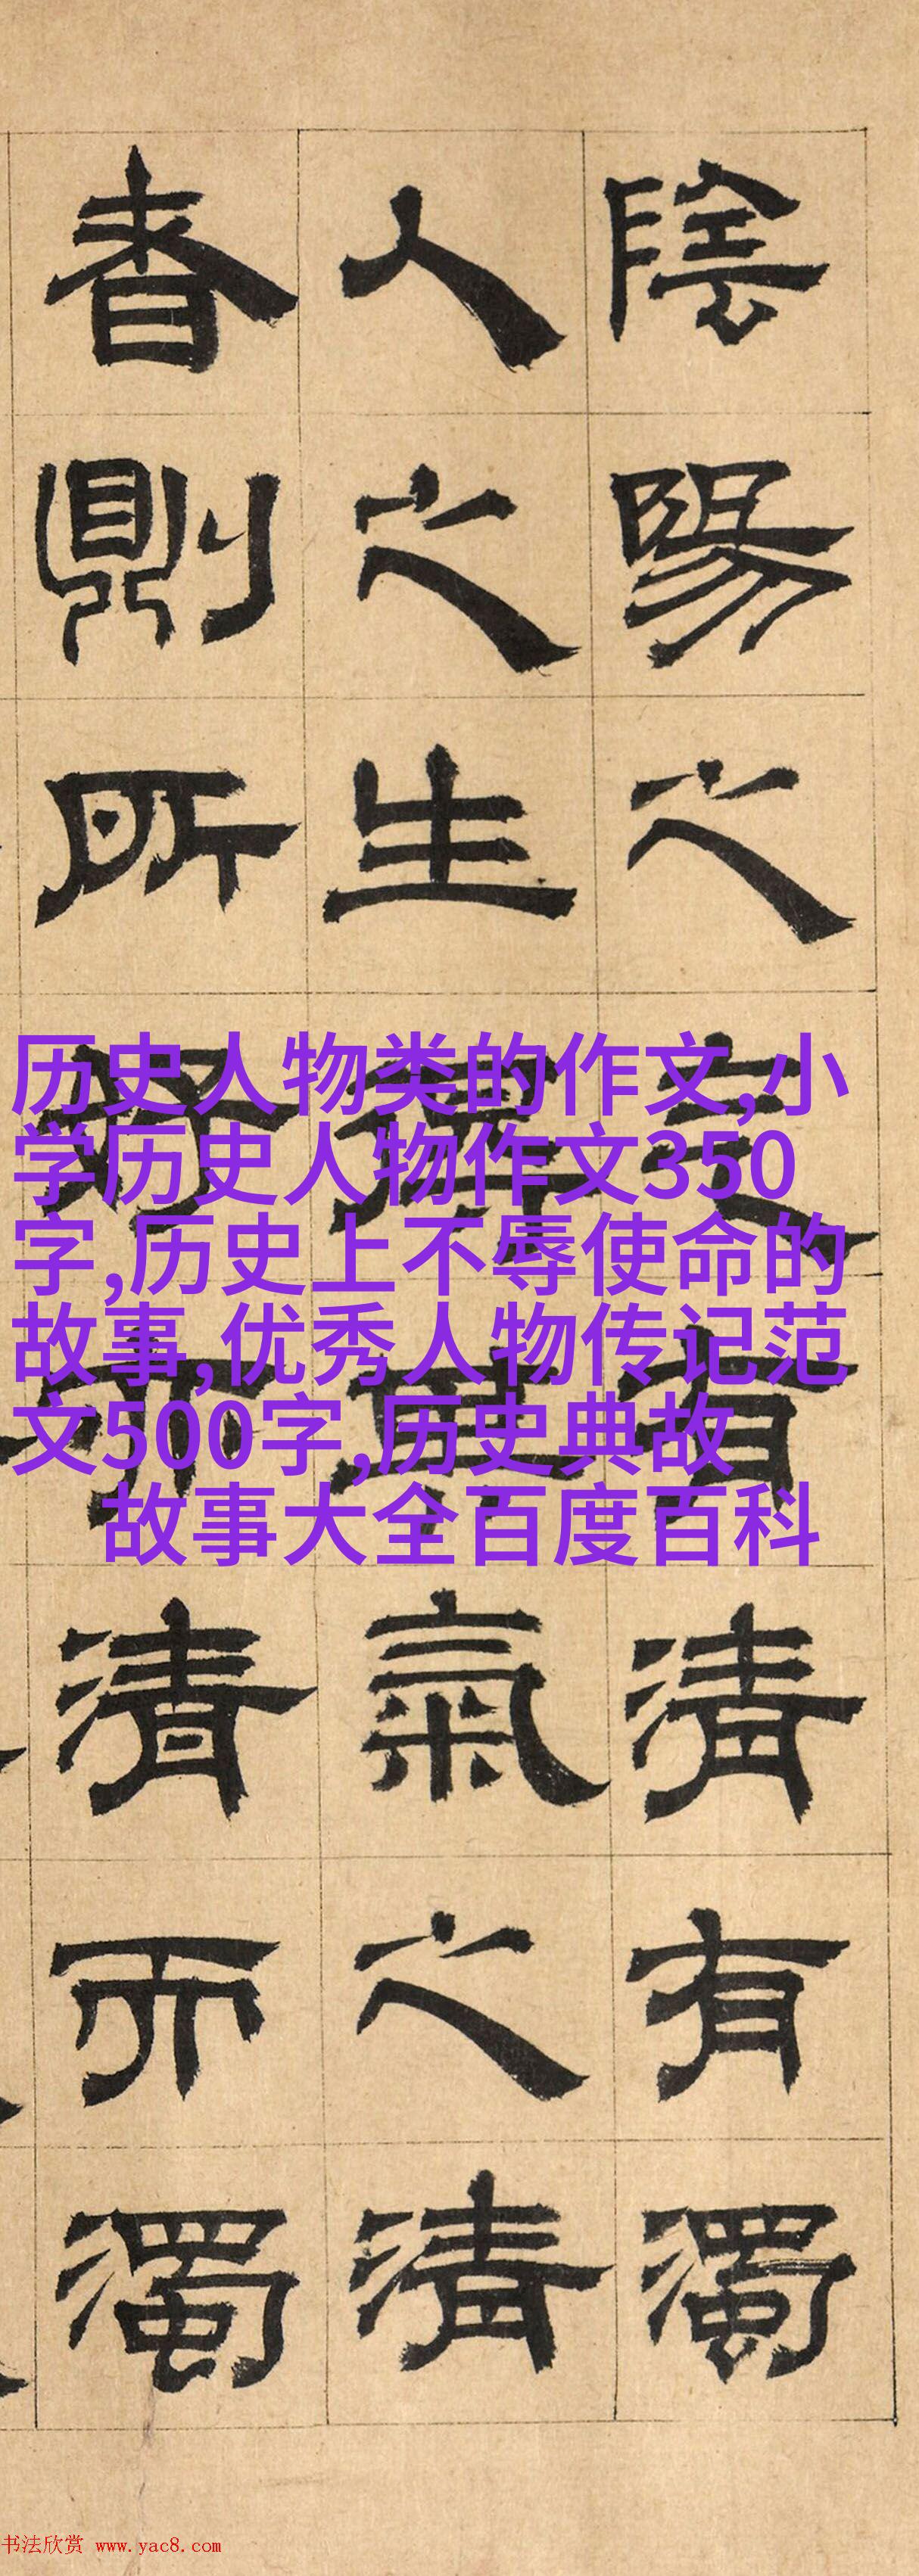 陰陽之气有清有濁
人之生其氣之清
者則所亦清而濁
历史人物类的作文,小
学历史人物作文350
字,历史上不辱使命的
故事,优秀人物传记范
文500字,历史典故
故事大全百度百科
书法欣赏 www.yac8.com